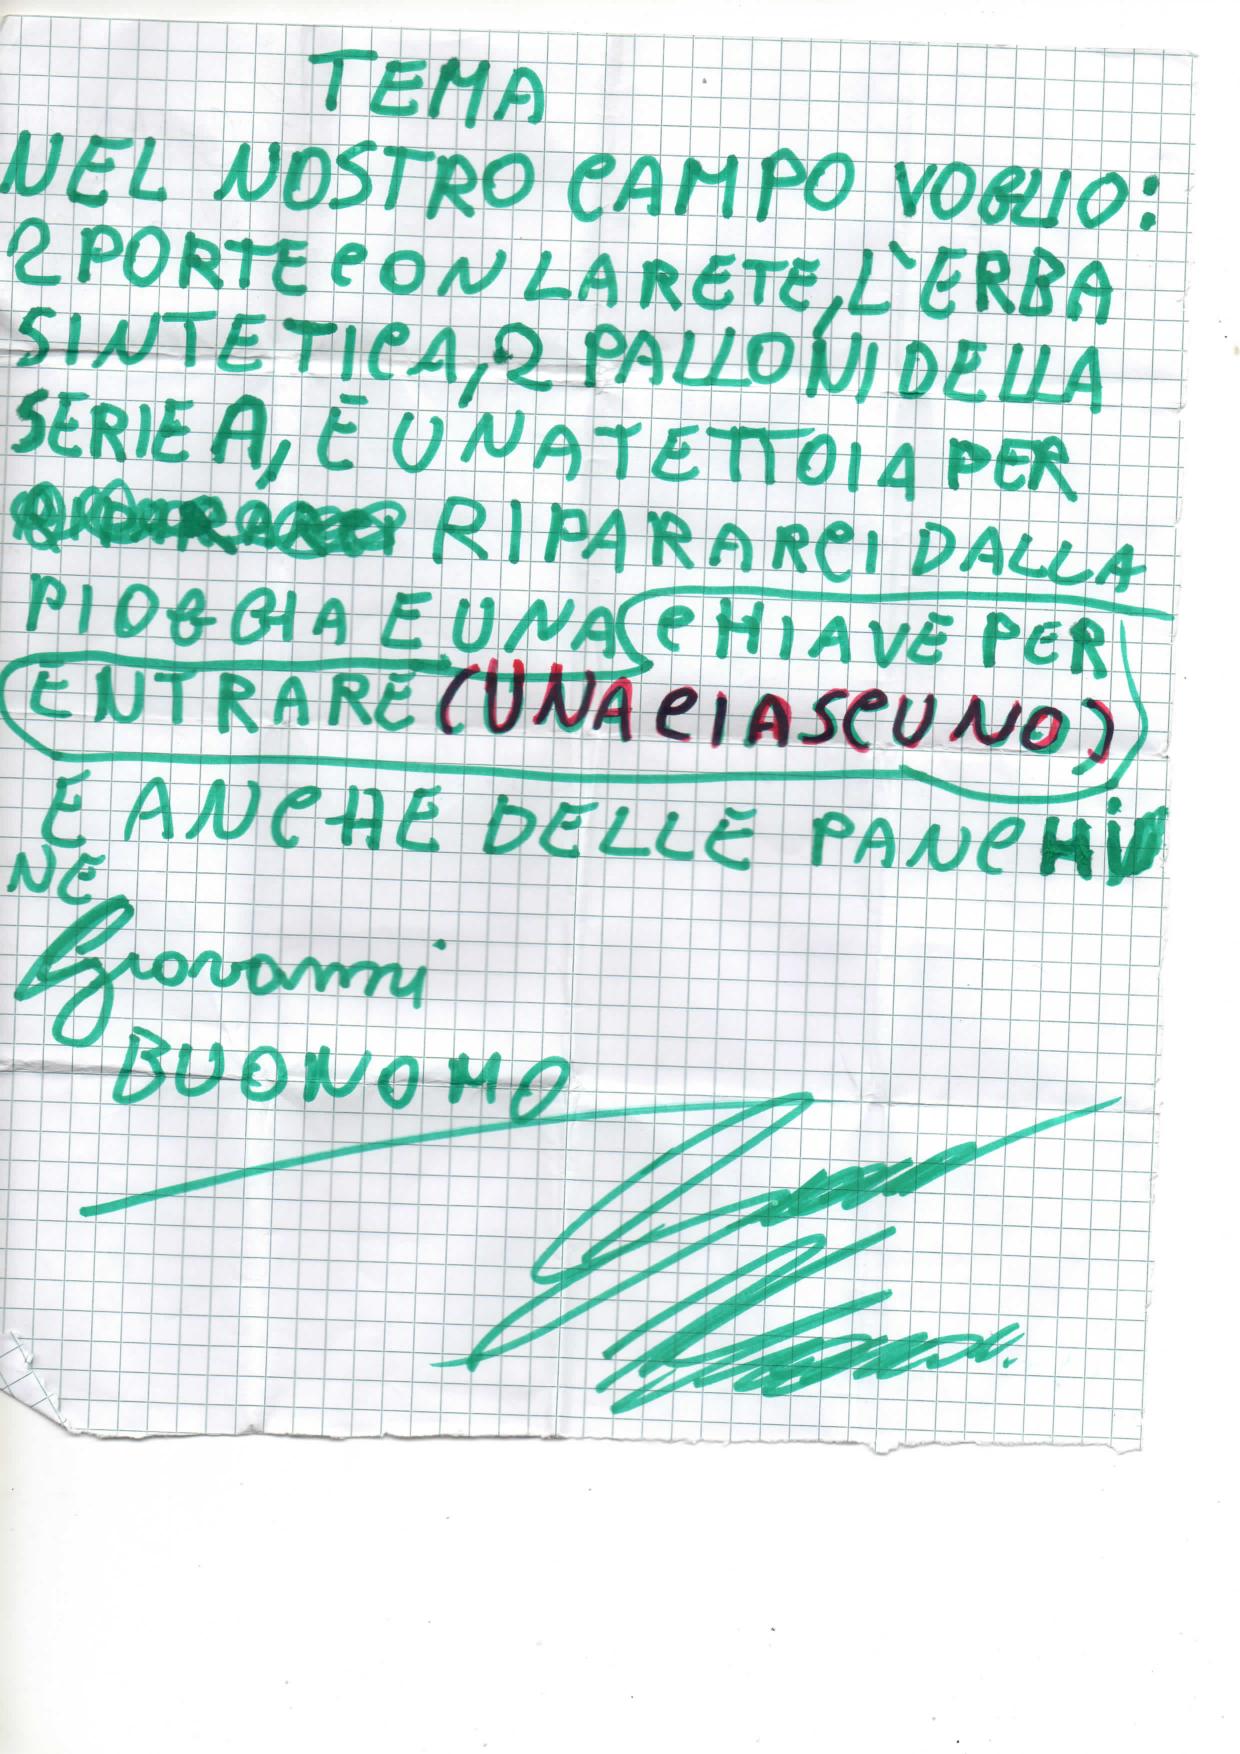 TEMA
NEL NOSTRO CAMPO VOGLIO:
2 PORTE CON LA RETE, L'ERBA
SINTETICA, 2 PALLONI DELLA
SERIE A, E UNA TETTOIA PER
RIPARARCI DALLA
PIOGGIA E UNA CHIAVE PER
ENTRARE (UNA CIASCUNO)
E ANCHE DELLE PANCHI
NE
Giovanni
BUONOMO